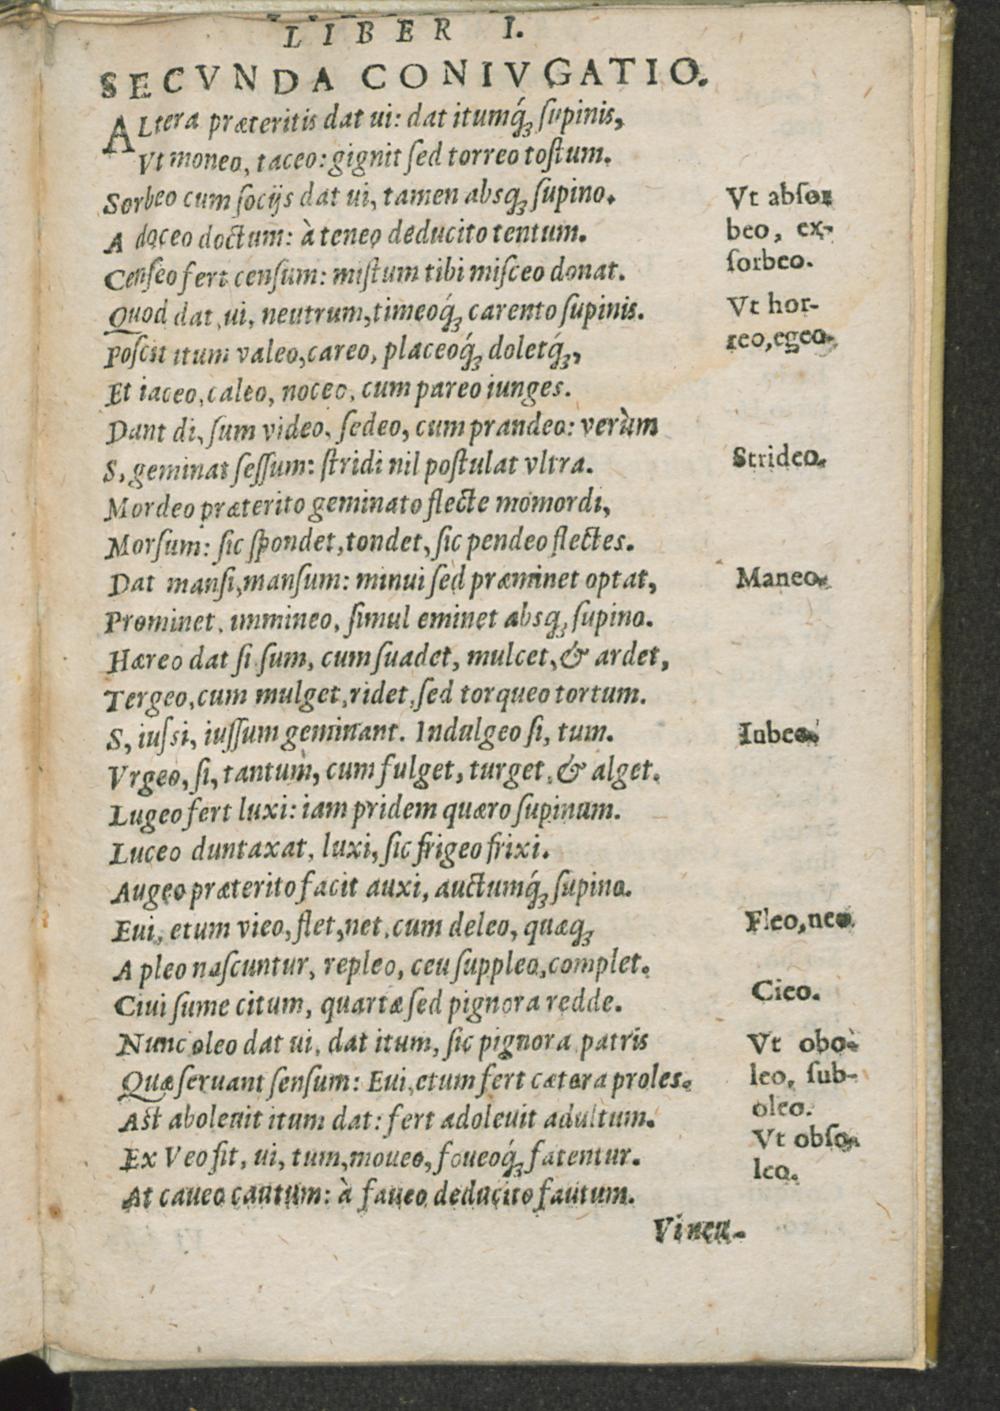 LIBER I.
SECVNDA CONIVGATIO.
ALtera præteritis dat ui: dat itumq́ꝫ ſupinis,
Vt moneo, taceo: gignit ſed torreo toſtum.
Sorbeo cum ſocijs dat ui, tamen absqꝫ ſupino.
Vt abſor
A doceo doctum: à teneo deducito tentum.
beo, ex-
Cenſeo fert cenſum: miſtum tibi miſceo donat.
ſorbeo.
Quod dat, ui, neutrum, timeoq́ꝫ carento ſupinis.
Vt hor-
Poſcit itum valeo, careo, placeoq́ꝫ doletq́ꝫ,
reo, egeo.
Et iaceo, caleo, noceo, cum pareo iunges.
Dant di, ſum video, ſedeo, cum prandeo: verùm
S, geminat ſeſſum: ſtridi nil poſtulat vltra.
Strideo.
Mordeo præterito geminato flecte momordi,
Morſum: ſic ſpondet, tondet, ſic pendeo flectes.
Dat manſi, manſum: minui ſed præminet optat,
Maneo.
Prominet, immineo, ſimul eminet absqꝫ ſupino.
Hæreo dat ſi ſum, cum ſuadet, mulcet, & ardet,
Tergeo, cum mulget, ridet, ſed torqueo tortum.
S, iuſsi, iuſſum geminant. Indulgeo ſi, tum.
Iubeo.
Vrgeo, ſi, tantum, cum fulget, turget, & alget.
Lugeo fert luxi: iam pridem quæro ſupinum.
Luceo duntaxat, luxi, ſic frigeo frixi.
Augeo præterito facit auxi, auctumq́ꝫ ſupino.
Eui, etum vieo, flet, net, cum deleo, quæqꝫ
Fleo, neo.
A pleo naſcuntur, repleo, ceu ſuppleo, complet.
Ciui ſume citum, quartæ ſed pignora redde.
Cieo.
Nunc oleo dat ui, dat itum, ſic pignora patris
Vt obo-
Quæ ſeruant ſenſum: Eui, etum fert cætera proles.
leo, ſub-
Aſt aboleuit itum dat: fert adoleuit adultum.
oleo.
Ex Veo fit, ui, tum, moueo, foueoq́ꝫ fatentur.
Vt obſo
At caueo cautum: à faueo deducito fautum.
leo.
Vinea-